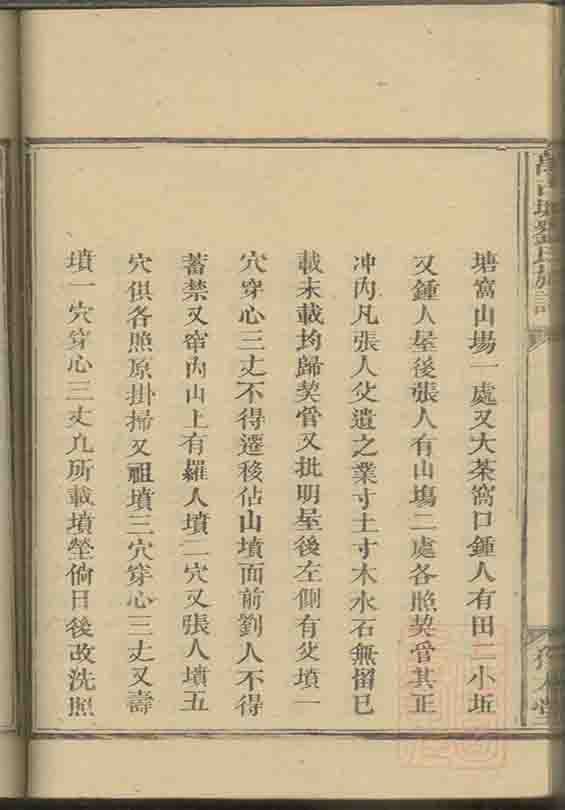 塘窩山場一處又大茶窩口鍾人有田二小坵
又鍾人屋後張人有山塲二處各照契管其正
冲內凡張人父遺之業寸土寸木水石無留已
載未載均歸契管又批明屋後左側有父墳一
穴穿心三丈不得遷移佔山墳面前劉人不得
蓄禁又窂內山上有羅人墳二穴又張人墳五
穴俱各照原掛掃又祖墳三穴穿心三丈又壽
墳一穴穿心三丈凡所載墳塋倘日後改洗照